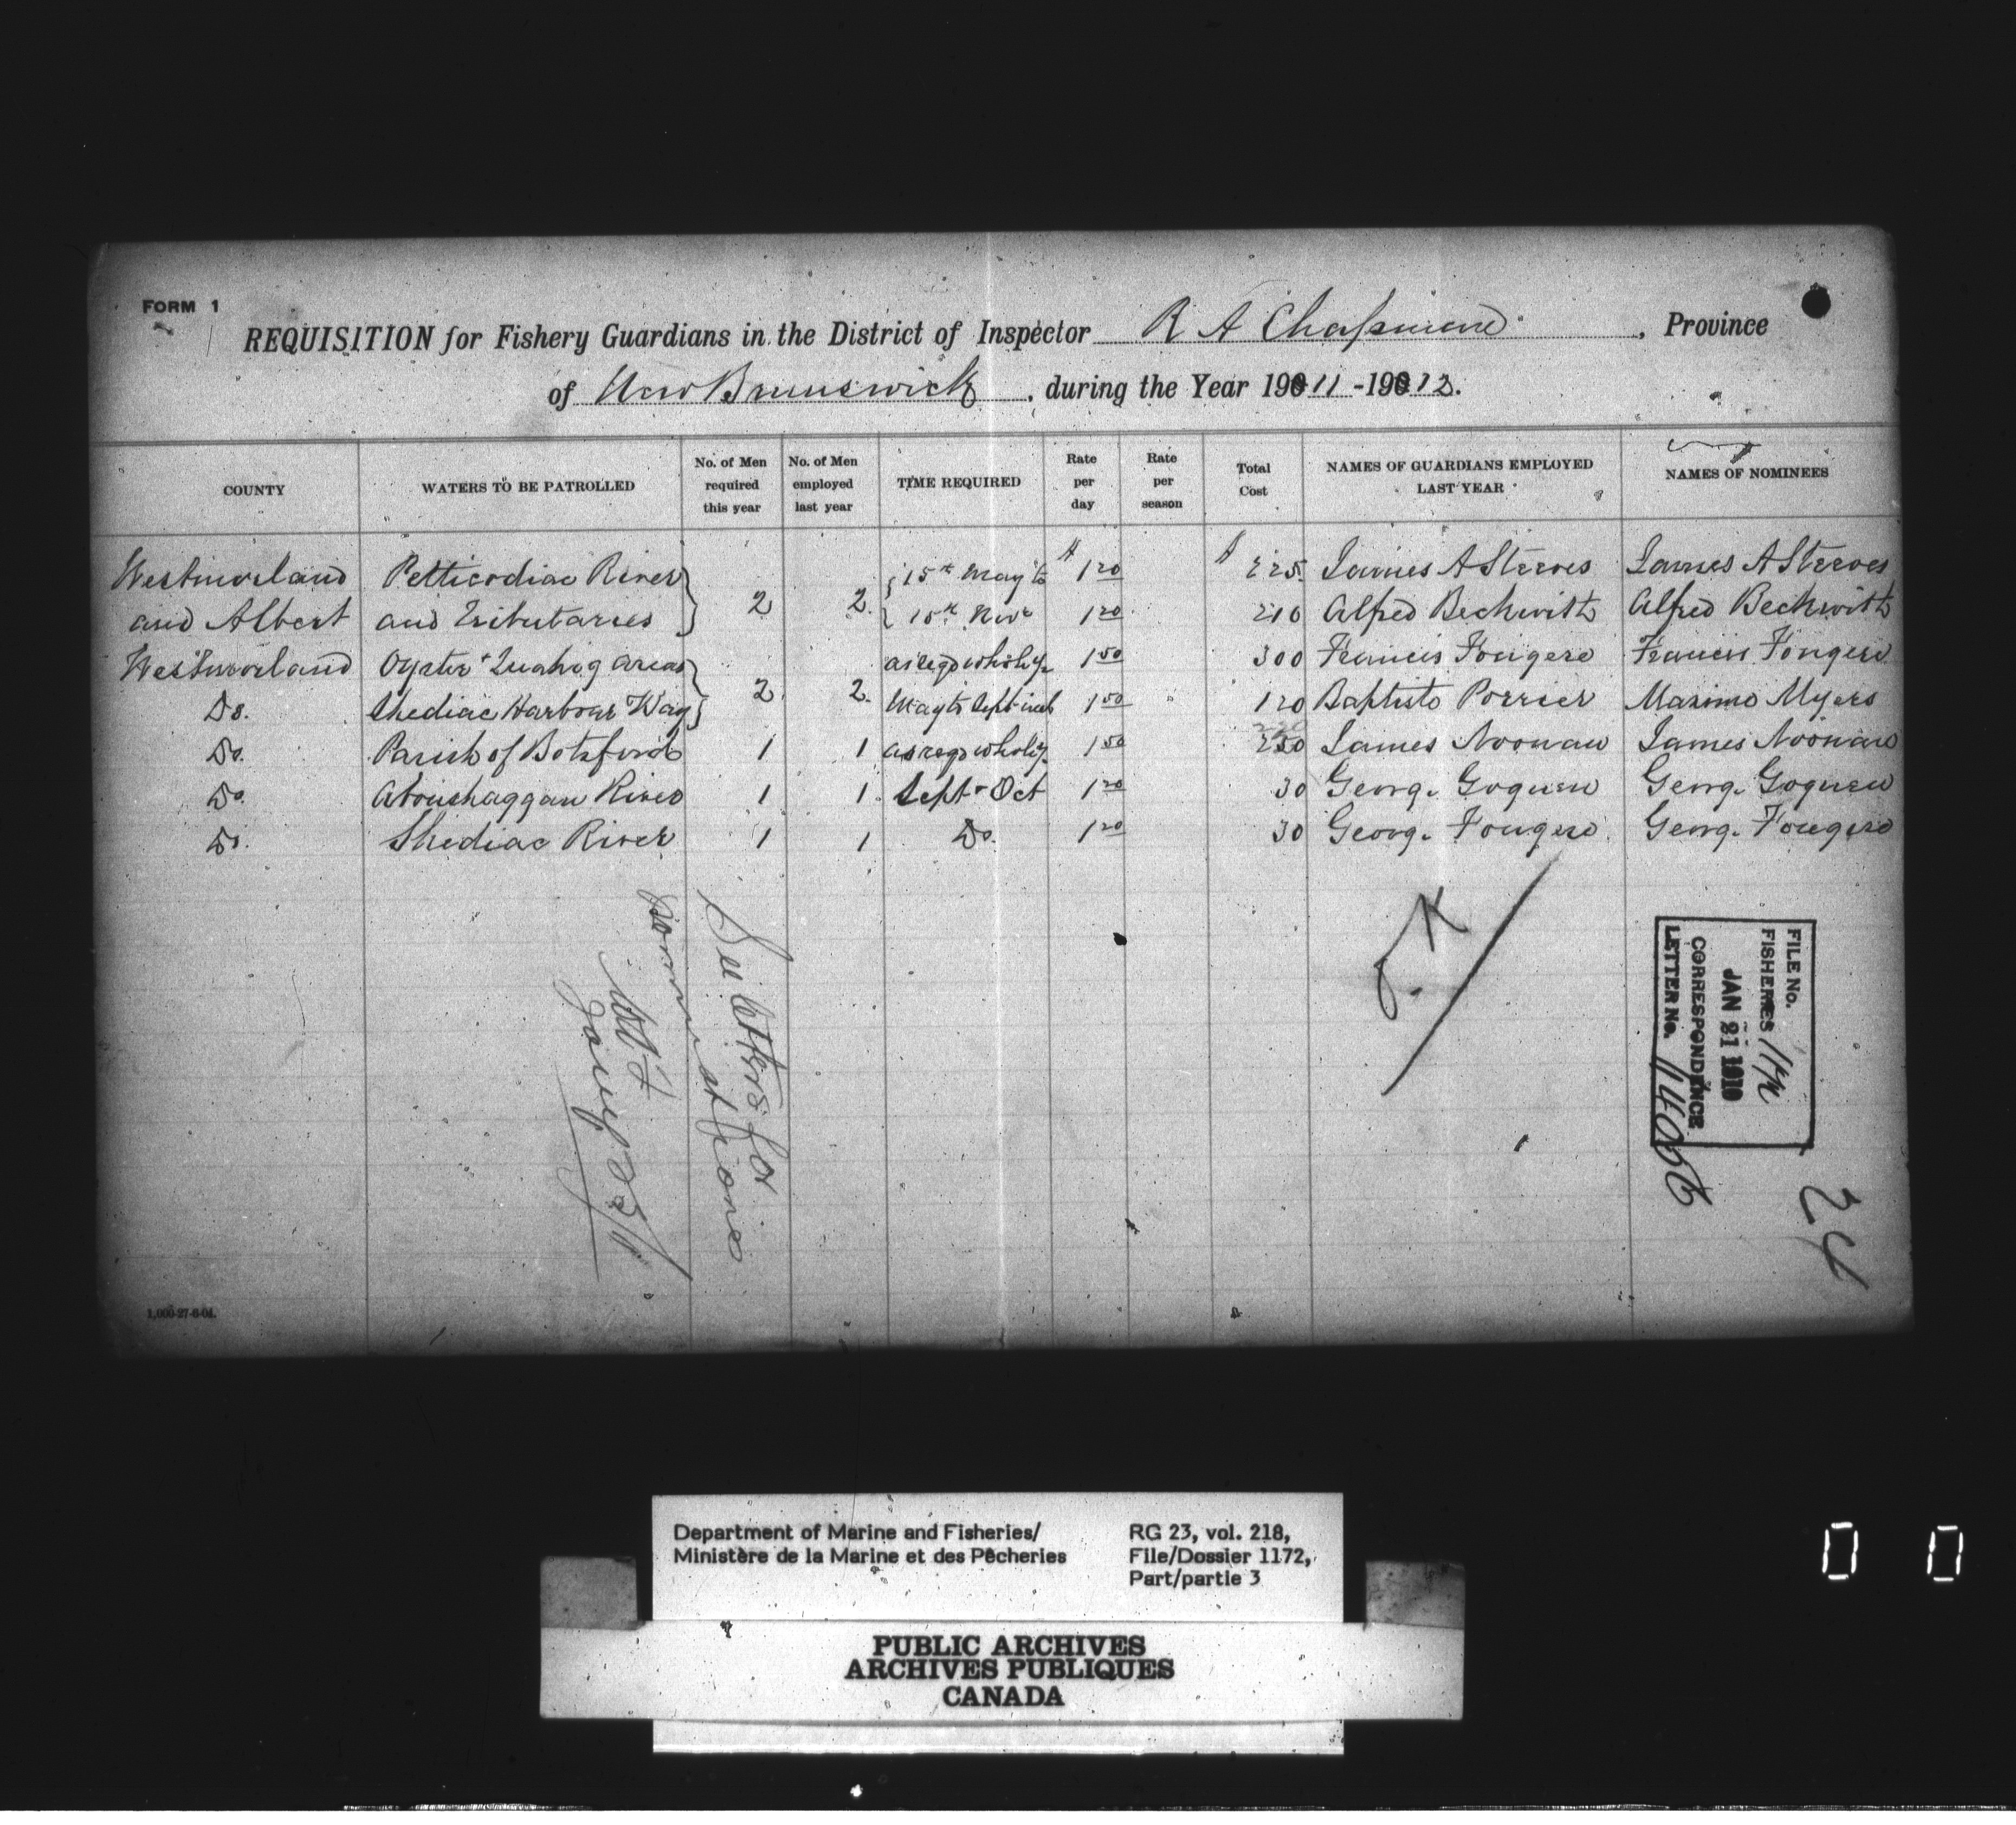 FORM 1
REQUISITION for Fishery Guardians in the District of Inspector R A Chapman, Province
of New Brunswick, during the Year 1911-1912.
COUNTY WATERS TO BE PATROLLED No. of Men required this year No. of Men employed last year TIME REQUIRED Rate per day Rate per season Total Cost NAMES OF GUARDIANS EMPLOYED LAST YEAR NAMES OF NOMINEES
Westmorland Petticodiac River 15th May to $ 1 20 $ 225 James A Steeves James A Steeves
and Albert and Tributaries 2 2 15th Novr 1 20 210 Alfred Beckwith Alfred Beckwith
Westmorland Oyster + Quahog areas 1 50 300 Francis Fougere Francis Fougere
Do. Shediac Harbour 2 2 May to Sept 1 50 120 Baptiste Poirrier Maximo Myers
Do. Parish of Botsford 1 1 1 50 James Noonan James Noonan
Do. Aboushaggan River 1 1 Sept + Oct 1 20 30 George Goguen George Goguen
Do. Shediac River 1 1 Do. 1 20 30 George Fougere George Fougere
See letters for
nominations
O.K
FILE No.
FISHERIES
JAN 21 1910
CORRESPONDENCE
LETTER No.
24
1,000-27-6-04.
Department of Marine and Fisheries/
Ministère de la Marine et des Pêcheries
RG 23, vol. 218,
File/Dossier 1172,
Part/partie 3
PUBLIC ARCHIVES
ARCHIVES PUBLIQUES
CANADA
0 0